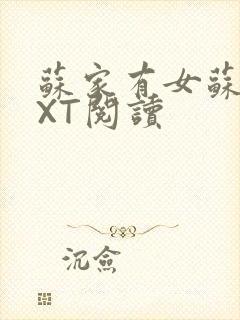 蘇家有女蘇
XT閱讀
沉儉